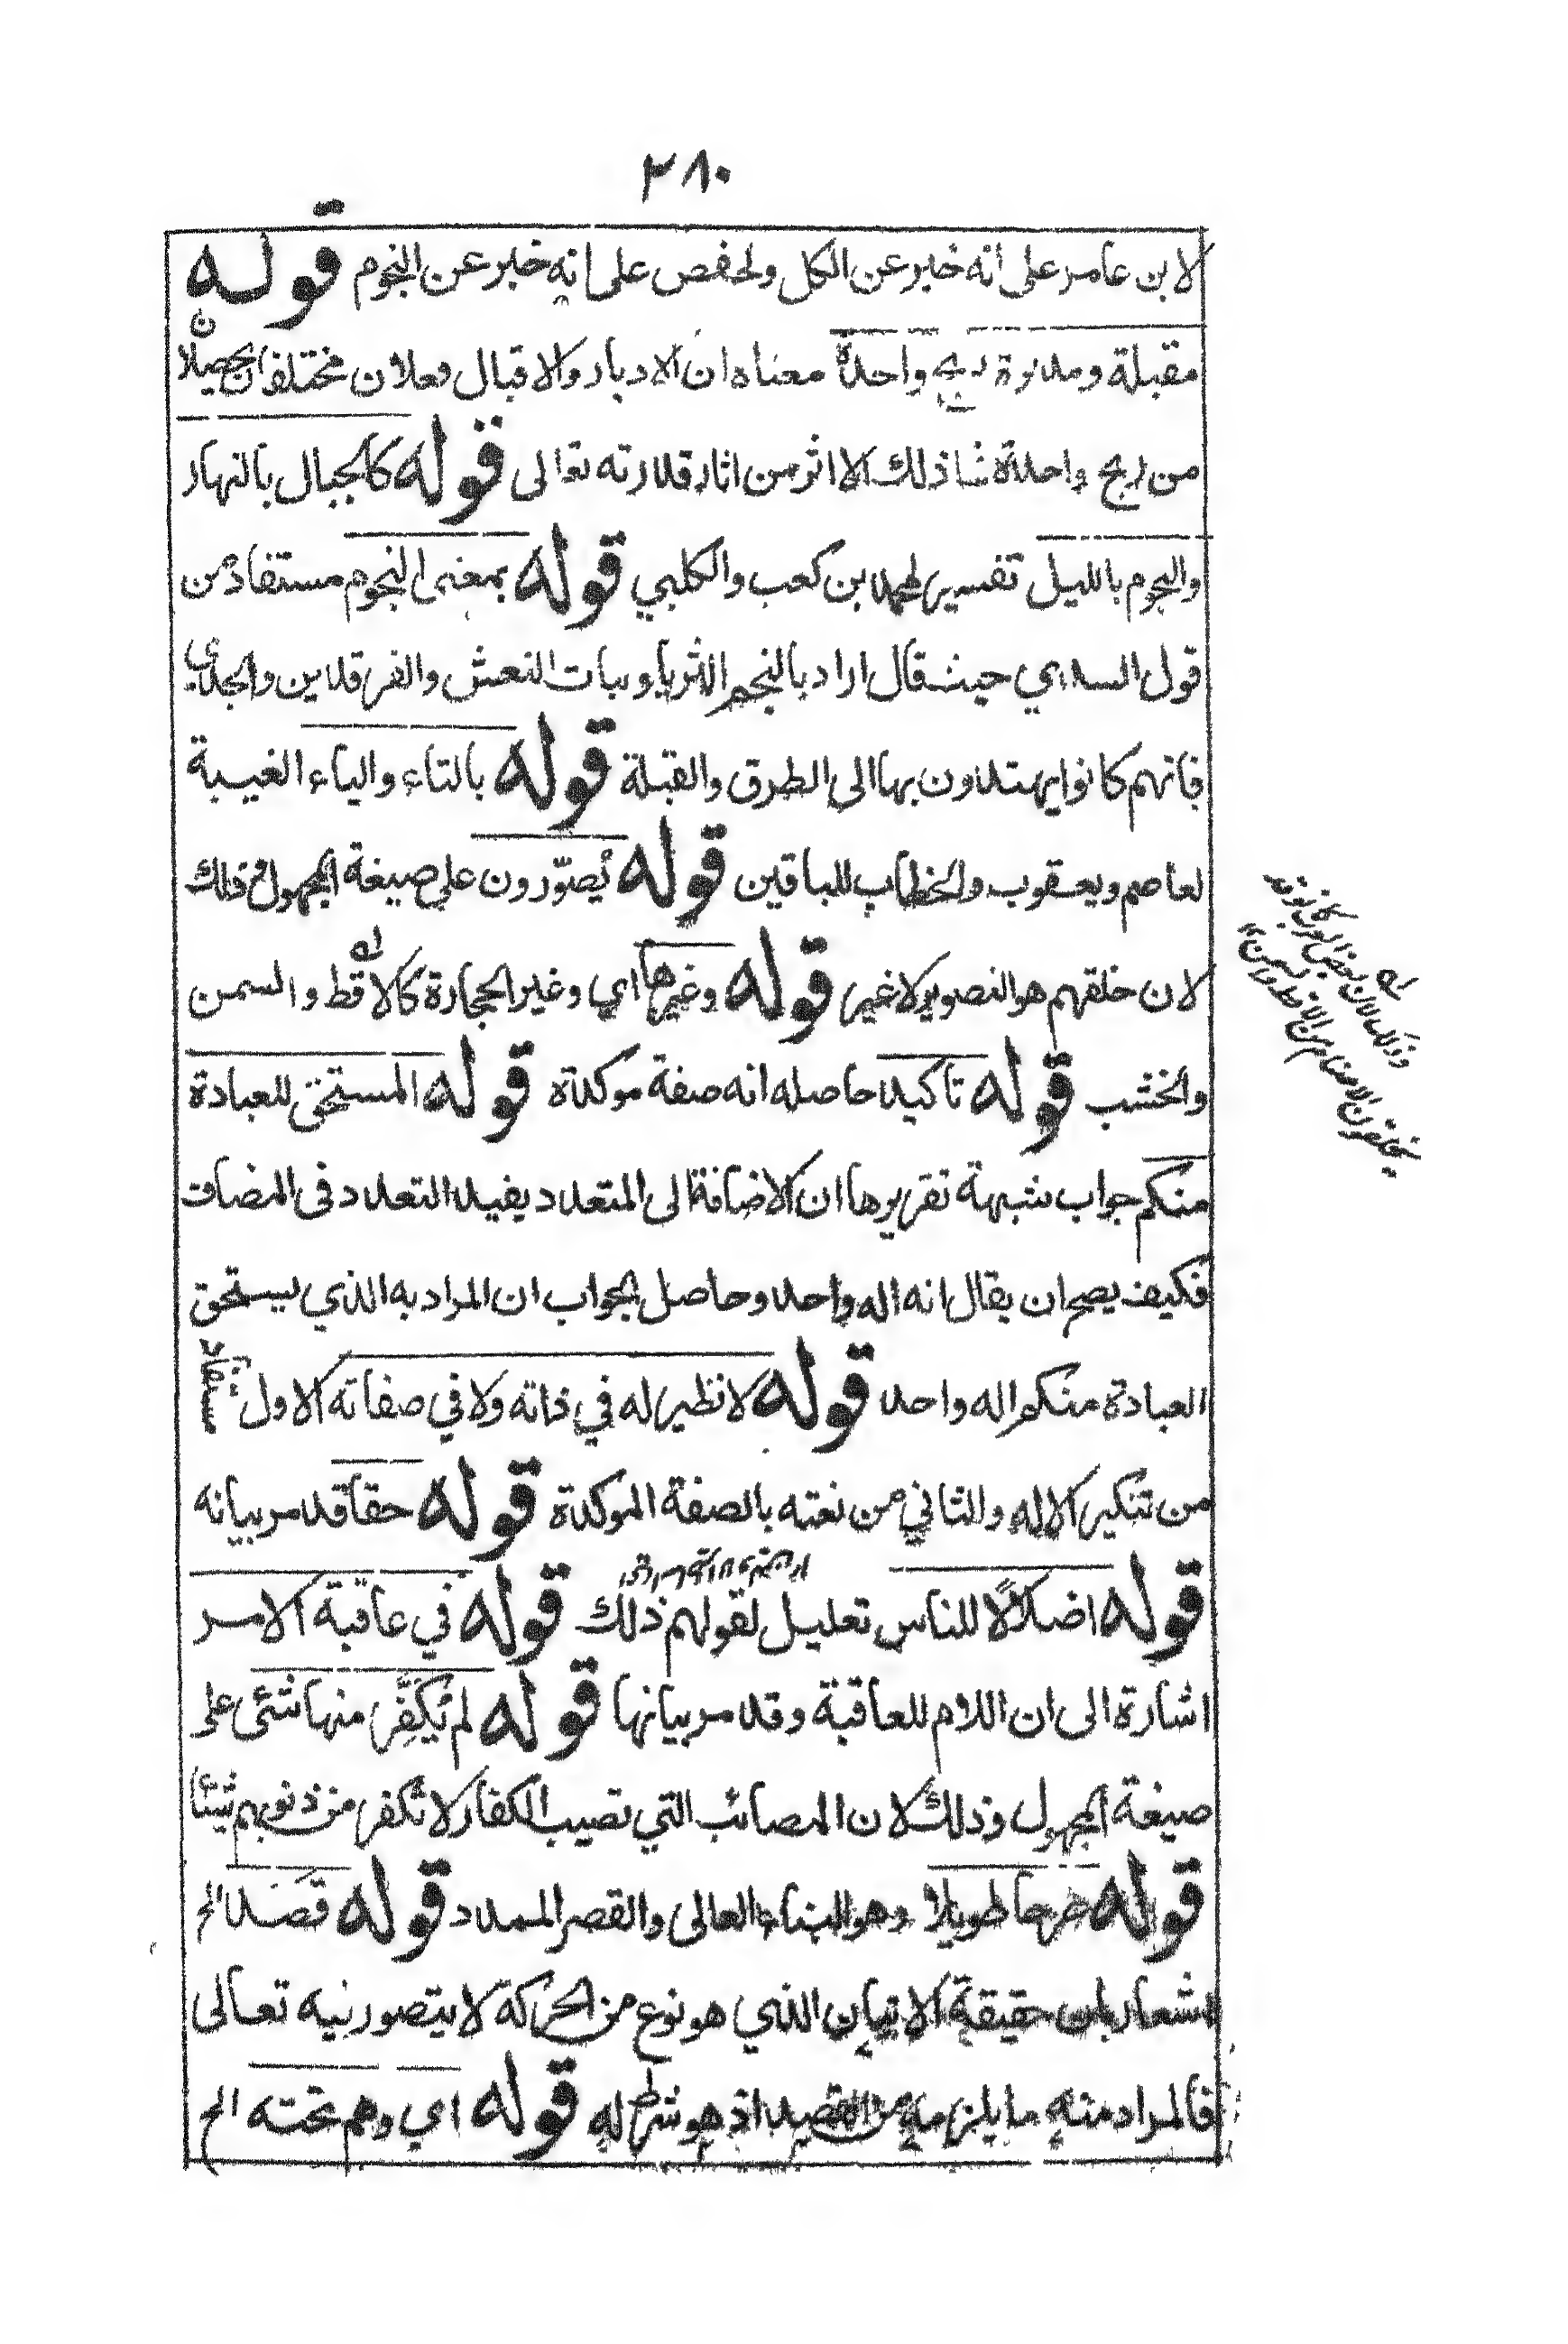 ٢٨٠
لابن عامر على انه خبر عن الكل ولحفص على انه خبر عن النجوم قوله
مقبلة ومدبرة بريح واحدة معناه ان الادبار والاقبال فعلان مختلفان يحصلان
من ريح واحدة فما ذلك الا اثر من اثار قدرته تعالى قوله كالجبال بالنهار
والنجوم بالليل تفسير لمحمد بن كعب والكلبي قوله بمعنى النجوم مستفاد من
قول السدي حيث قال اراد بالنجم الثريا وبنات النعش والفرقدين والجدي
فانهم كانوا يهتدون بها الى الطرق والقبلة قوله بالتاء والياء الغيبة
لعاصم ويعقوب والخطاب للباقين قوله يُصوّرون على صيغة المجهول وذلك
لان خلقهم هو التصوير لا غير قوله وغيرها اي وغير الحجارة كالاقط والسمن
والخشب قوله تاكيد حاصله انه صفة موكدة قوله المستحق للعبادة
منكم جواب شبهة تقريرها ان الاضافة الى المتعدد يفيد التعدد في المضاف
فكيف يصح ان يقال انه اله واحد وحاصل الجواب ان المراد به الذي يستحق
العبادة منكم اله واحد قوله لا نظير له في ذاته ولا في صفاته الاول مستفاد
من تنكير الاله والثاني من نعته بالصفة الموكدة قوله حقا قد مر بيانه
قوله اضلالًا للناس تعليل لقولهم ذلك قوله في عاقبة الامر
اشارة الى ان اللام للعاقبة وقد مر بيانها قوله لم يُكَفَّر منها شئى على
صيغة المجهول وذلك لان المصائب التي تصيب الكفار لا تكفر من ذنوبهم شيئا
قوله صرحا طويلا وهو البناء العالى والقصر الممدد قوله قَصَد الخ
اشعار بان حقيقة الاتيان الذي هو نوع من الحركة لا يتصور فيه تعالى
فالمراد منه ما يلزمه من القصد اذ هو شرط له قوله اي وهم تحته الخ
وذلك لان بعض العرب كانوا
يخلقون الاصنام من الاقط والسمن